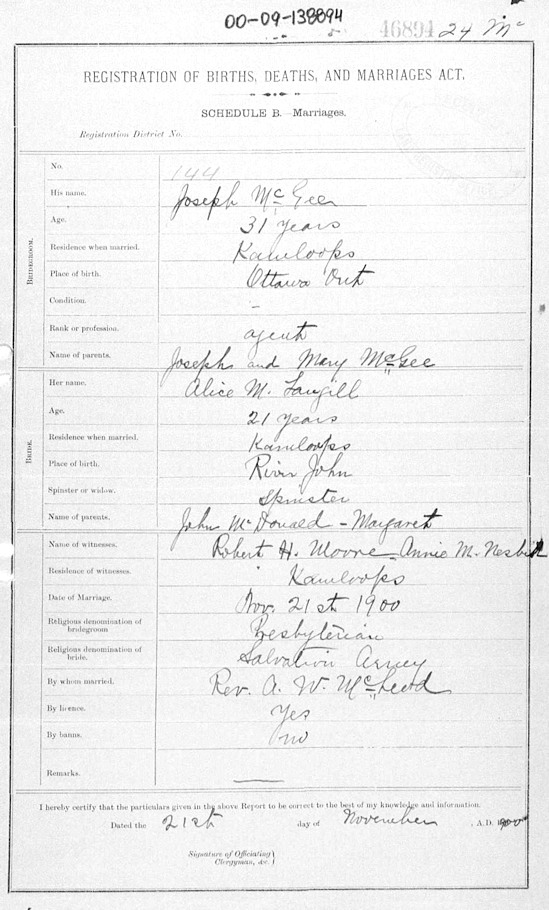 00-09-138894
46894 24 Mc
REGISTRATION OF BIRTHS, DEATHS, AND MARRIAGES ACT.
SCHEDULE B.—Marriages.
Registration District No.
No. 144
BRIDEGROOM.
His name. Joseph McGee
Age. 31 years
Residence when married. Kamloops
Place of birth. Ottawa Ont
Condition. -
Rank or profession. agent
Name of parents. Joseph and Mary McGee
BRIDE.
Her name. Alice M. Langill
Age. 21 years
Residence when married. Kamloops
Place of birth. River John
Spinster or widow. Spinster
Name of parents. John McDonald - Margaret
Name of witnesses. Robert H. Moore - Annie M. Nesbitt
Residence of witnesses. Kamloops
Date of Marriage. Nov. 21st 1900
Religious denomination of
bridegroom Presbyterian
Religious denomination of
bride. Salvation Army
By whom married. Rev. A. W. McLeod
By licence. Yes
By banns. no
Remarks. —
I hereby certify that the particulars given in the above Report to be correct to the best of my knowledge and information.
Dated the 21st day of November , A.D. 1900
Signature of Officiating
Clergyman, &c.